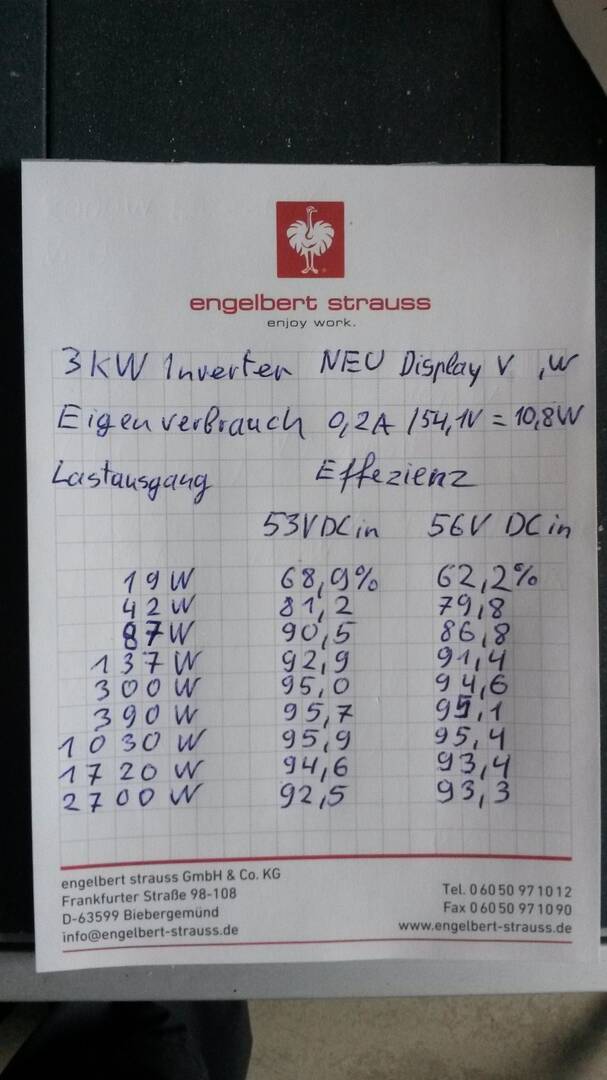 engelbert strauss
enjoy work.
3KW Inverter NEU Display V ,W
Eigenverbrauch 0,2A /54,1V = 10,8W
Lastausgang Effezienz
53VDCin 56V DCin
19W 68,9% 62,2%
42W 81,2 79,8
87W 90,5 86,8
137W 92,9 91,4
300W 95,0 94,6
390W 95,7 95,1
1030W 95,9 95,4
1720W 94,6 93,4
2700W 92,5 93,3
engelbert strauss GmbH & Co. KG
Frankfurter Straße 98-108 Tel. 0 60 50 97 10 12
D-63599 Biebergemünd Fax 0 60 50 97 10 90
info@engelbert-strauss.de www.engelbert-strauss.de